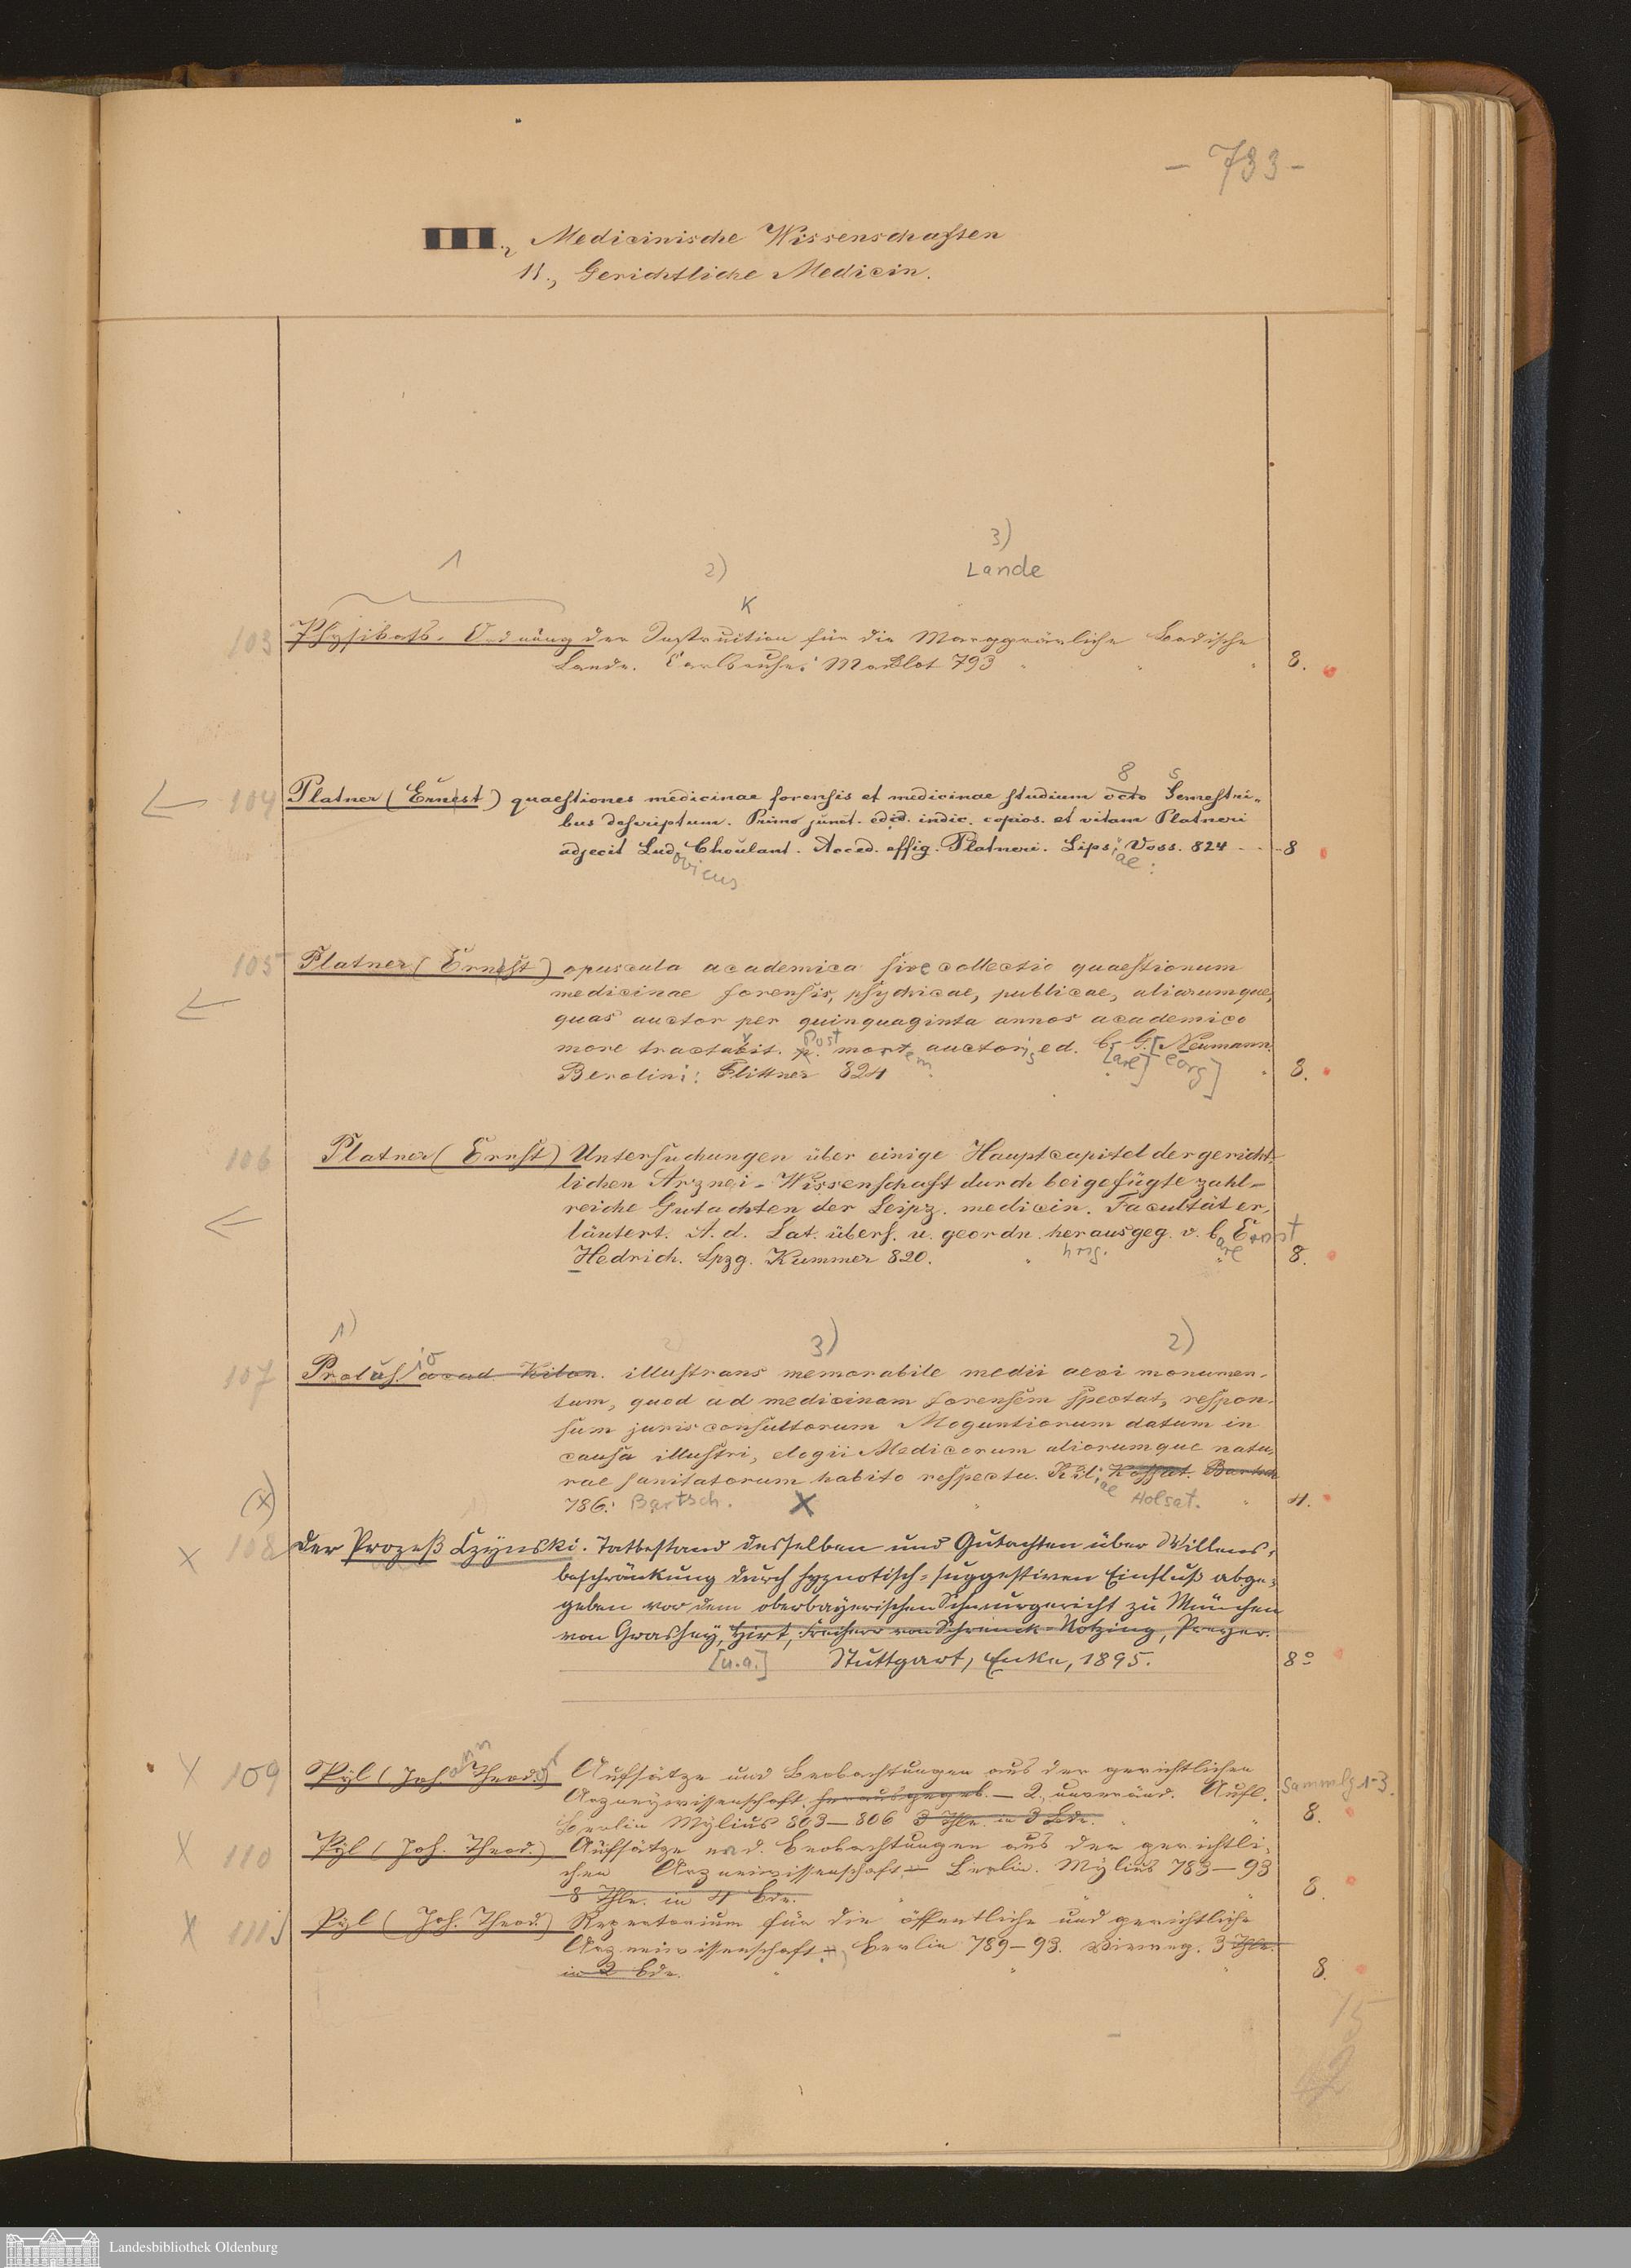 - 733 -
III., Medicinische Wissenschaften
11., Gerichtliche Medicin.
3)
1 2) Lande
K
103 Physikats-Ordnung der Instruction für die Marggrävliche Badische
Lande. Carlsruhe: Macklot 793 8.
8 S
104 Platner (Ernest) quaestiones medicinae forensis et medicinae studium octo Semestri-
bus descriptum. Primo junct. edid. indic. copios. et vitam Platneri
adjecit Lud. Choulant. Acced. effig. Platneri. Lips. Voss. 824 8
ovicus ae:
105 Platner (Ernest) opuscula academica sive collectio quaestionum
medicinae forensis, psychicae, publicae, aliarumque,
quas auctor per quinquaginta annos academico
more tractavit. p. mort auctoris ed. C. G. Neumann.
Post em [arl] [eorg]
Berolini: Flittner 824 8.
106 Platner (Ernst) Untersuchungen über einige Hauptcapitel der gericht-
lichen Arznei-Wissenschaft durch beigefügte zahl-
reiche Gutachten der Leipz. medicin. Facultät er-
läutert. A. d. Lat. übers. u. geordn. herausgeg. v. C. Ernst
hrsg. arl
Hedrich. Lpzg. Kummer 820. 8.
1) 3) 2)
107 Prolusio acad. Kilon. illustrans memorabile medii aevi monumen-
tum, quod ad medicinam forensem spectat, respon-
sum jurisconsultorum Moguntiorum datum in
causa illustri, elogii Medicorum aliorumque natu-
rae sanitatorum habito respectu. Kil. Bartsch
ae Holsat.
(x) 786: Bartsch. X 4.
x 108 Der Prozeß Czynski. Tatbestand desselben und Gutachten über Willens-
beschränkung durch hypnotisch-suggestiven Einfluß abge-
geben vor dem oberbayerischen Schwurgericht zu München
von Grashey, Hirt, Freiherr von Schrenck-Notzing, Preyer.
[u.a.] Stuttgart, Enke, 1895. 8°
X 109 Pyl (Joh. Theod.) Aufsätze und Beobachtungen aus der gerichtlichen
ann
Arzneywissenschaft. herausgegeb. — 2., unveränd. Aufl. Sammlg 1-3.
Berlin Mylius 803—806 3 Thle. in 3 Bde. 8.
X 110 Pyl (Joh. Theod.) Aufsätze und. Beobachtungen aus der gerichtli-
chen Arzneiwissenschaft. — Berlin. Mylius 783—93
8 Thle. in 4 Bde. 8.
X 111 Pyl (Joh. Theod.) Repertorium für die öffentliche und gerichtliche
Arzneiwissenschaft. — Berlin 789—93. Vieweg. 3 Thle.
in 2 Bde. 8.
15
Landesbibliothek Oldenburg